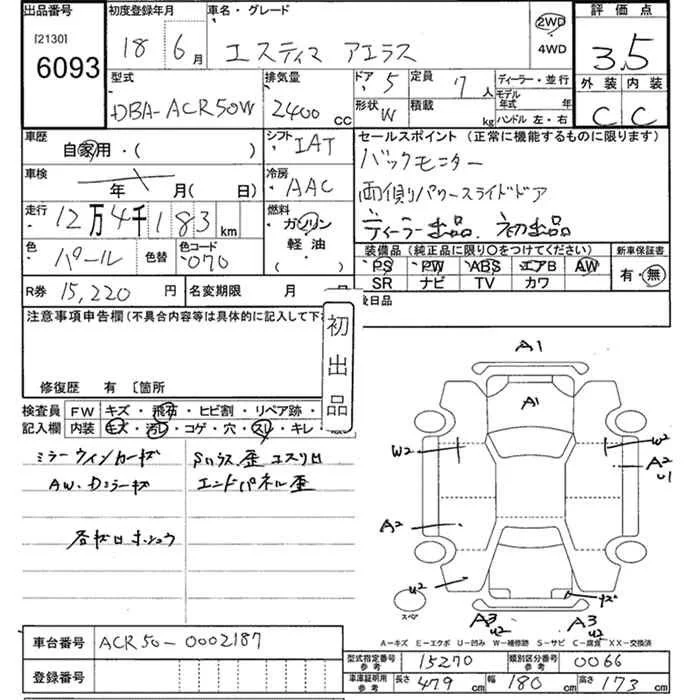 出品番号
[2130]
6093
初度登録年月
18 6月
車名・グレード
エスティマ アエラス
2WD
4WD
評価点
3.5
外装 内装
C C
型式
DBA-ACR50W
排気量
2400 cc
ドア 5
形状 W
定員 7人
積載 kg
ディーラー・並行
モデル年式 年
ハンドル 左・右
車歴
自家用・( )
シフト IAT
セールスポイント (正常に機能するものに限ります)
バックモニター
両側パワースライドドア
ディーラー出品. 初出品
車検
年 月(日)
冷房 AAC
走行
12万4千183km
燃料
ガソリン
軽油
( )
色 パール 色替
色コード 070
装備品 (純正品に限り○をつけてください)
PS PW ABS エアB AW
SR ナビ TV カワ
新車保証書
有・無
R券 15,220円
名変期限 月 日
扱日品
注意事項申告欄(不具合内容等は具体的に記入して下
初出品
修復歴 有 〔箇所
検査員記入欄
FW キズ・飛石・ヒビ割・リペア跡・
内装 キズ・汚レ・コゲ・穴・スレ・キレ・
ミラーウィンカーキズ
Sハウス歪 コスリ凹
AW.Dミラーキズ
エンドパネル歪
各キズ凹ホシュウ
A1
A1
W2
W2
A2
U1
A2
U2
キズ
A3
U2
A3
U2
スペア
A-キズ E-エクボ U-凹み W-補修跡 S-サビ C-腐食 XX-交換済
車台番号 ACR50-0002187
登録番号
型式指定番号 参考 15270
類別区分番号 参考 0066
車庫証明用 参考
長さ 479cm 幅 180cm 高さ 173cm